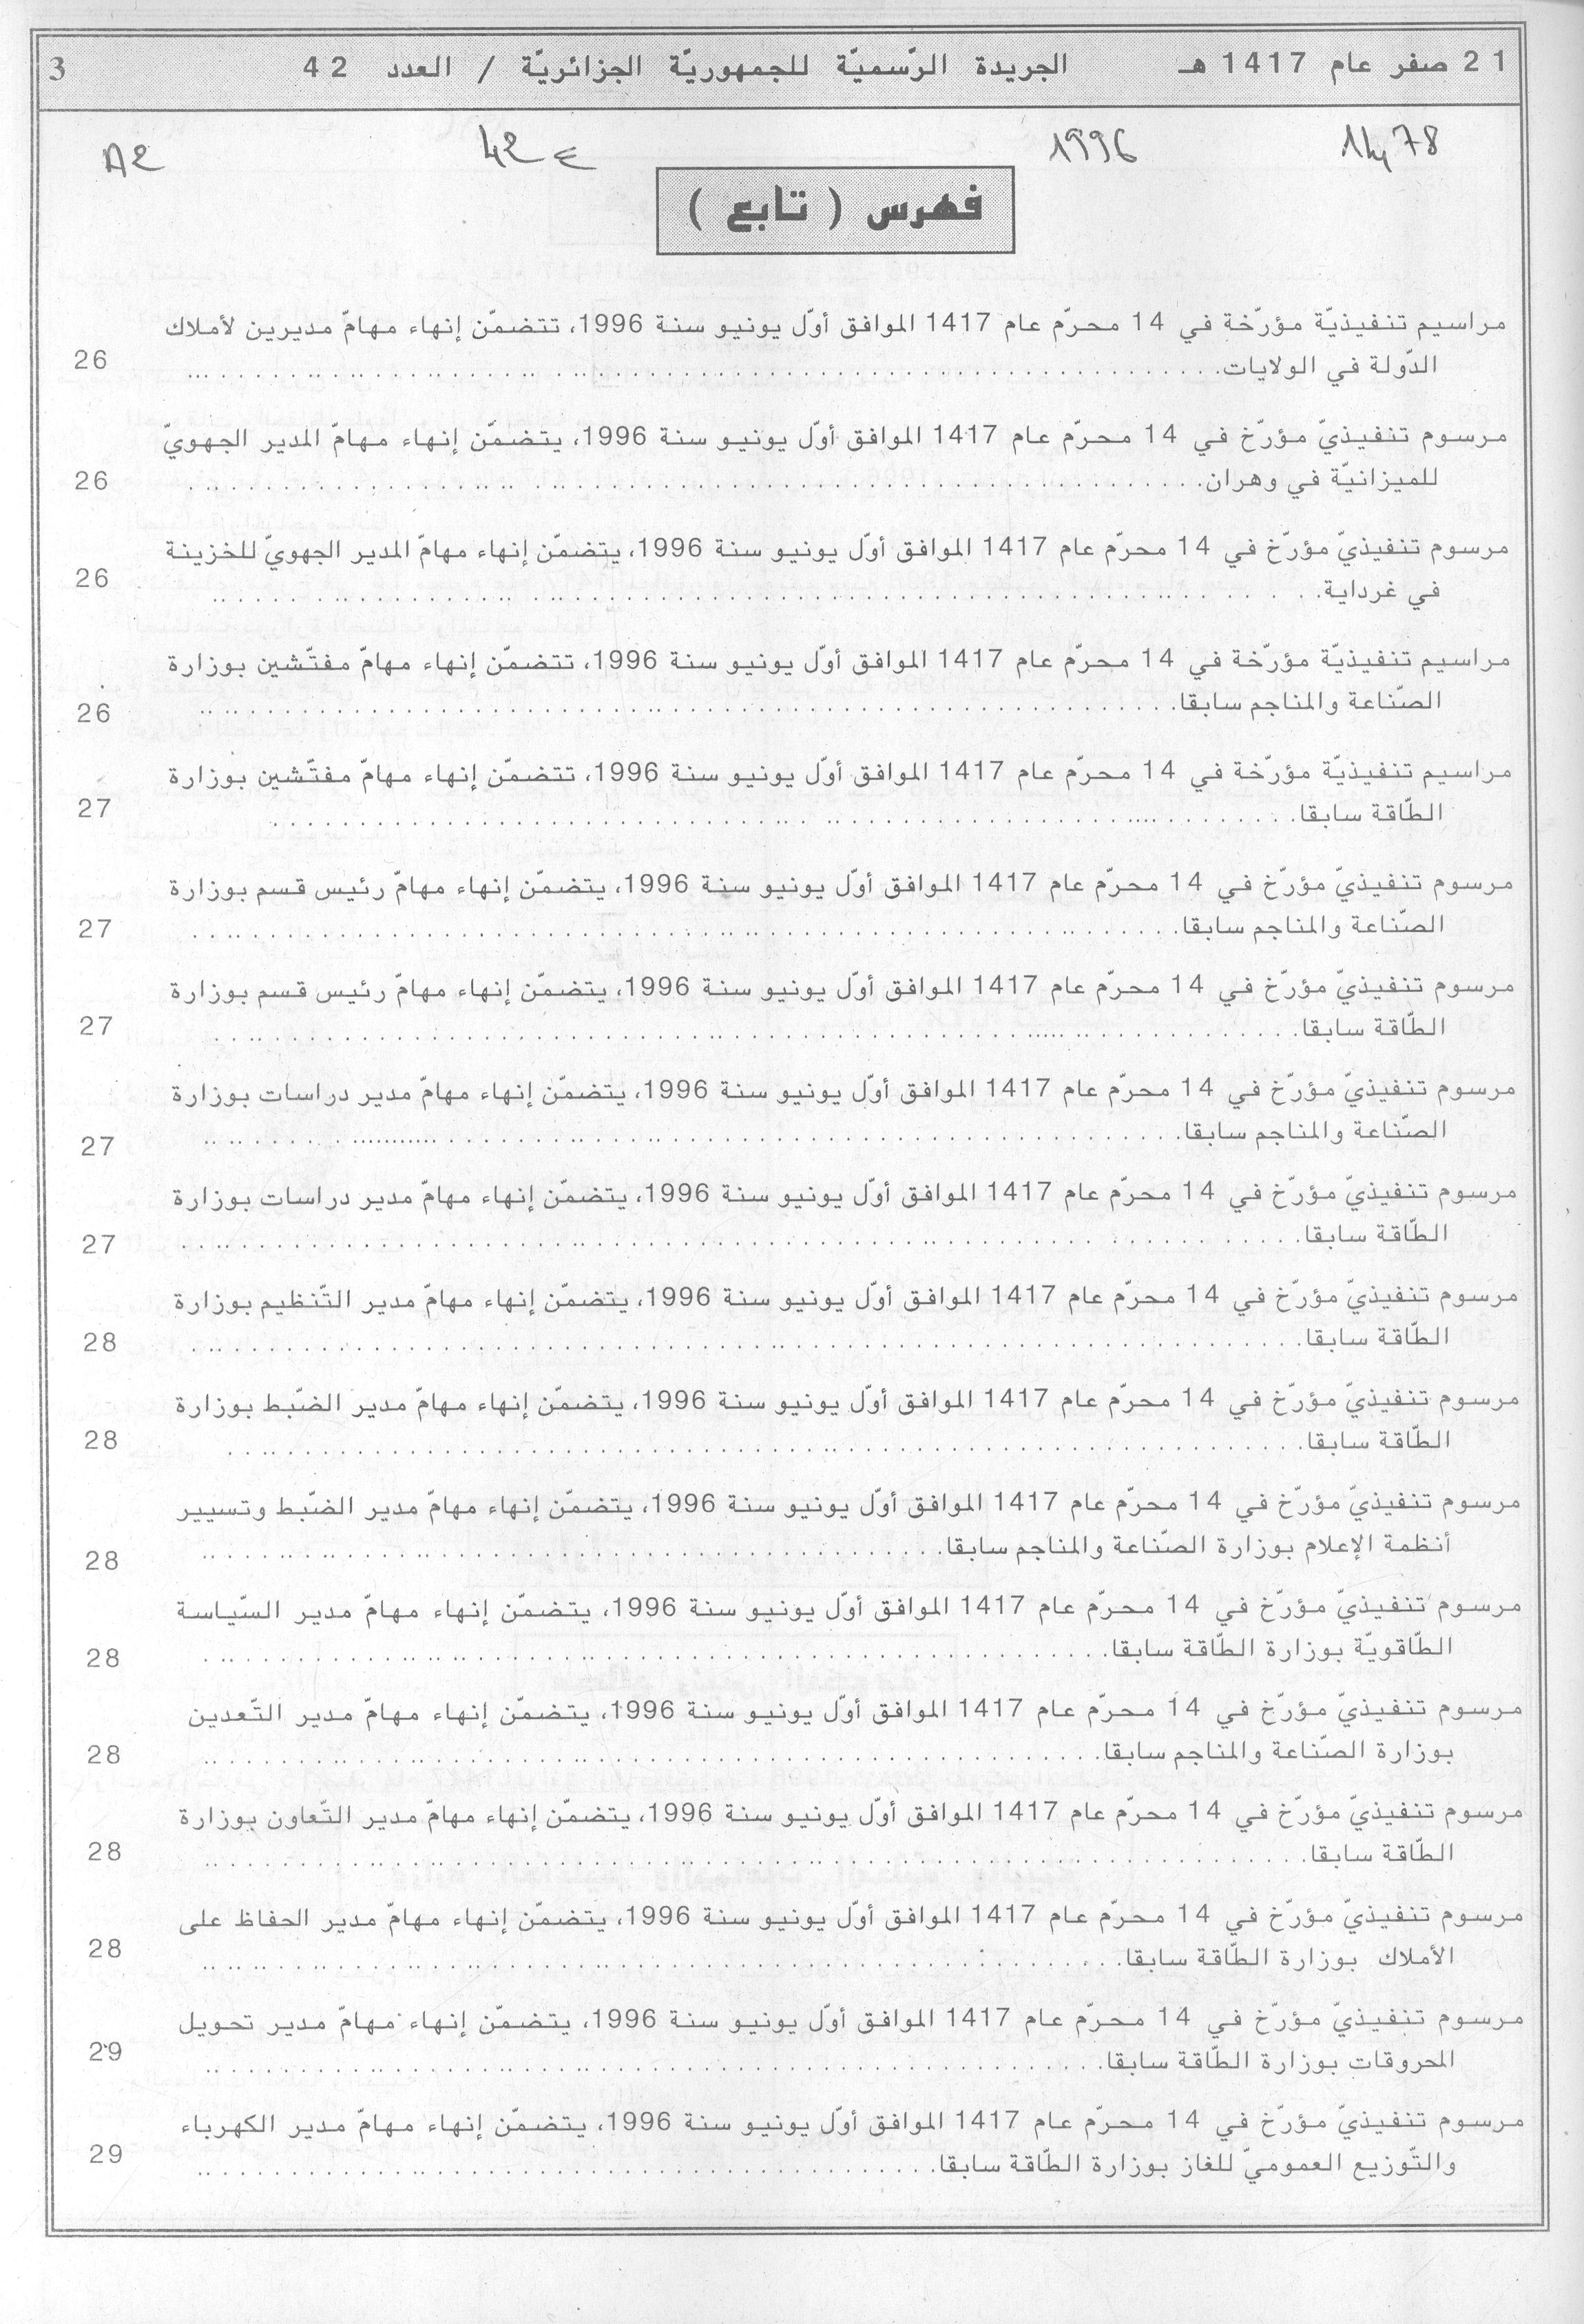 21 صفر عام 1417 هـ الجريدة الرّسميّة للجمهوريّة الجزائريّة / العدد 42 3
1996 42 ع A2
فهرس ( تابع )
مراسيم تنفيذيّة مؤرّخة في 14 محرّم عام 1417 الموافق أوّل يونيو سنة 1996، تتضمّن إنهاء مهامّ مديرين لأملاك
الدّولة في الولايات. 26
مرسوم تنفيذيّ مؤرّخ في 14 محرّم عام 1417 الموافق أوّل يونيو سنة 1996، يتضمّن إنهاء مهامّ المدير الجهويّ
للميزانيّة في وهران. 26
مرسوم تنفيذيّ مؤرّخ في 14 محرّم عام 1417 الموافق أوّل يونيو سنة 1996، يتضمّن إنهاء مهامّ المدير الجهويّ للخزينة
في غرداية. 26
مراسيم تنفيذيّة مؤرّخة في 14 محرّم عام 1417 الموافق أوّل يونيو سنة 1996، تتضمّن إنهاء مهامّ مفتّشين بوزارة
الصّناعة والمناجم سابقا. 26
مراسيم تنفيذيّة مؤرّخة في 14 محرّم عام 1417 الموافق أوّل يونيو سنة 1996، تتضمّن إنهاء مهامّ مفتّشين بوزارة
الطّاقة سابقا. 27
مرسوم تنفيذيّ مؤرّخ في 14 محرّم عام 1417 الموافق أوّل يونيو سنة 1996، يتضمّن إنهاء مهامّ رئيس قسم بوزارة
الصّناعة والمناجم سابقا. 27
مرسوم تنفيذيّ مؤرّخ في 14 محرّم عام 1417 الموافق أوّل يونيو سنة 1996، يتضمّن إنهاء مهامّ رئيس قسم بوزارة
الطّاقة سابقا. 27
مرسوم تنفيذيّ مؤرّخ في 14 محرّم عام 1417 الموافق أوّل يونيو سنة 1996، يتضمّن إنهاء مهامّ مدير دراسات بوزارة
الصّناعة والمناجم سابقا. 27
مرسوم تنفيذيّ مؤرّخ في 14 محرّم عام 1417 الموافق أوّل يونيو سنة 1996، يتضمّن إنهاء مهامّ مدير دراسات بوزارة
الطّاقة سابقا. 27
مرسوم تنفيذيّ مؤرّخ في 14 محرّم عام 1417 الموافق أوّل يونيو سنة 1996، يتضمّن إنهاء مهامّ مدير التّنظيم بوزارة
الطّاقة سابقا. 28
مرسوم تنفيذيّ مؤرّخ في 14 محرّم عام 1417 الموافق أوّل يونيو سنة 1996، يتضمّن إنهاء مهامّ مدير الضّبط بوزارة
الطّاقة سابقا. 28
مرسوم تنفيذيّ مؤرّخ في 14 محرّم عام 1417 الموافق أوّل يونيو سنة 1996، يتضمّن إنهاء مهامّ مدير الضّبط وتسيير
أنظمة الإعلام بوزارة الصّناعة والمناجم سابقا. 28
مرسوم تنفيذيّ مؤرّخ في 14 محرّم عام 1417 الموافق أوّل يونيو سنة 1996، يتضمّن إنهاء مهامّ مدير السّياسة
الطّاقويّة بوزارة الطّاقة سابقا. 28
مرسوم تنفيذيّ مؤرّخ في 14 محرّم عام 1417 الموافق أوّل يونيو سنة 1996، يتضمّن إنهاء مهامّ مدير التّعدين
بوزارة الصّناعة والمناجم سابقا. 28
مرسوم تنفيذيّ مؤرّخ في 14 محرّم عام 1417 الموافق أوّل يونيو سنة 1996، يتضمّن إنهاء مهامّ مدير التّعاون بوزارة
الطّاقة سابقا. 28
مرسوم تنفيذيّ مؤرّخ في 14 محرّم عام 1417 الموافق أوّل يونيو سنة 1996، يتضمّن إنهاء مهامّ مدير الحفاظ على
الأملاك بوزارة الطّاقة سابقا. 28
مرسوم تنفيذيّ مؤرّخ في 14 محرّم عام 1417 الموافق أوّل يونيو سنة 1996، يتضمّن إنهاء مهامّ مدير تحويل
المحروقات بوزارة الطّاقة سابقا. 29
مرسوم تنفيذيّ مؤرّخ في 14 محرّم عام 1417 الموافق أوّل يونيو سنة 1996، يتضمّن إنهاء مهامّ مدير الكهرباء
والتّوزيع العموميّ للغاز بوزارة الطّاقة سابقا. 29